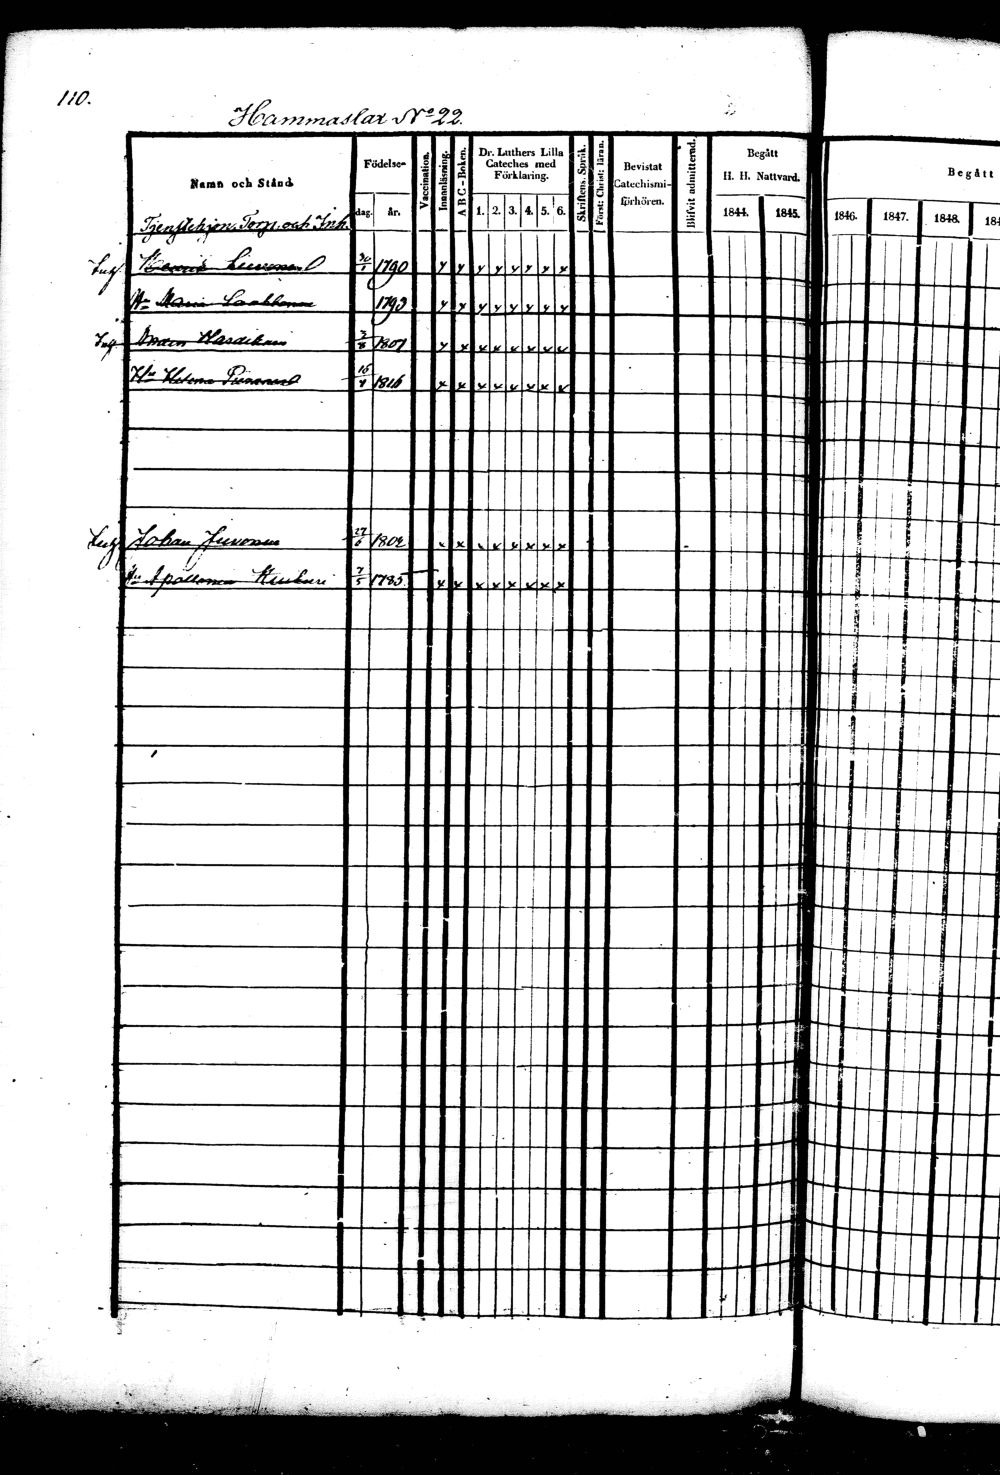 110.
Hammaslax No 22.
Namn och Stånd
Födelse-
dag. år.
Vaccination.
Innanläsning.
A B C - Boken.
Dr. Luthers Lilla
Cateches med
Förklaring.
1. 2. 3. 4. 5. 6.
Skriftens Språk.
Först: Christ: läran.
Bevistat
Catechismi-
förhören.
Blifvit admitterad.
Begått
H. H. Nattvard.
1844. 1845.
Begått
1846. 1847. 1848. 184
Tjenstehjon, Torp. och Inh.
1790 x x x x x x x x
Hu Maria 1793 x x x x x x x x
3/8 1801 x x x x x x x x
Hu Helena 16/4 1816 x x x x x x x x
Johan Juvonen 27/6 1802 x x x x x x x x
Hu Apollonia 7/5 1785 x x x x x x x x